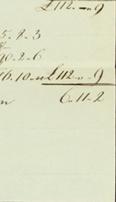 £112.—.9
5.8.3
10.2.6
16.10.11 £112.—.9
6.11.2